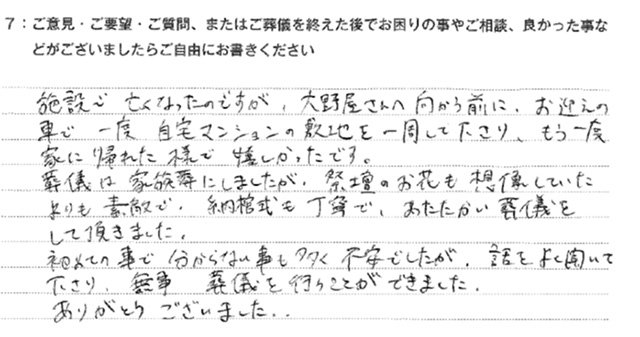 7：ご意見・ご要望・ご質問、またはご葬儀を終えた後でお困りの事やご相談、良かった事な
どがございましたらご自由にお書きください
施設で亡くなったのですが、大野屋さんへ向かう前に、お迎えの
車で一度自宅マンションの敷地を一周して下さり、もう一度
家に帰れた様で嬉しかったです。
葬儀は家族葬にしましたが、祭壇のお花も想像していた
よりも素敵で、納棺式も丁寧で、あたたかい葬儀を
して頂きました。
初めての事で分からない事も多く不安でしたが、話をよく聞いて
下さり、無事葬儀を行うことができました。
ありがとうございました..